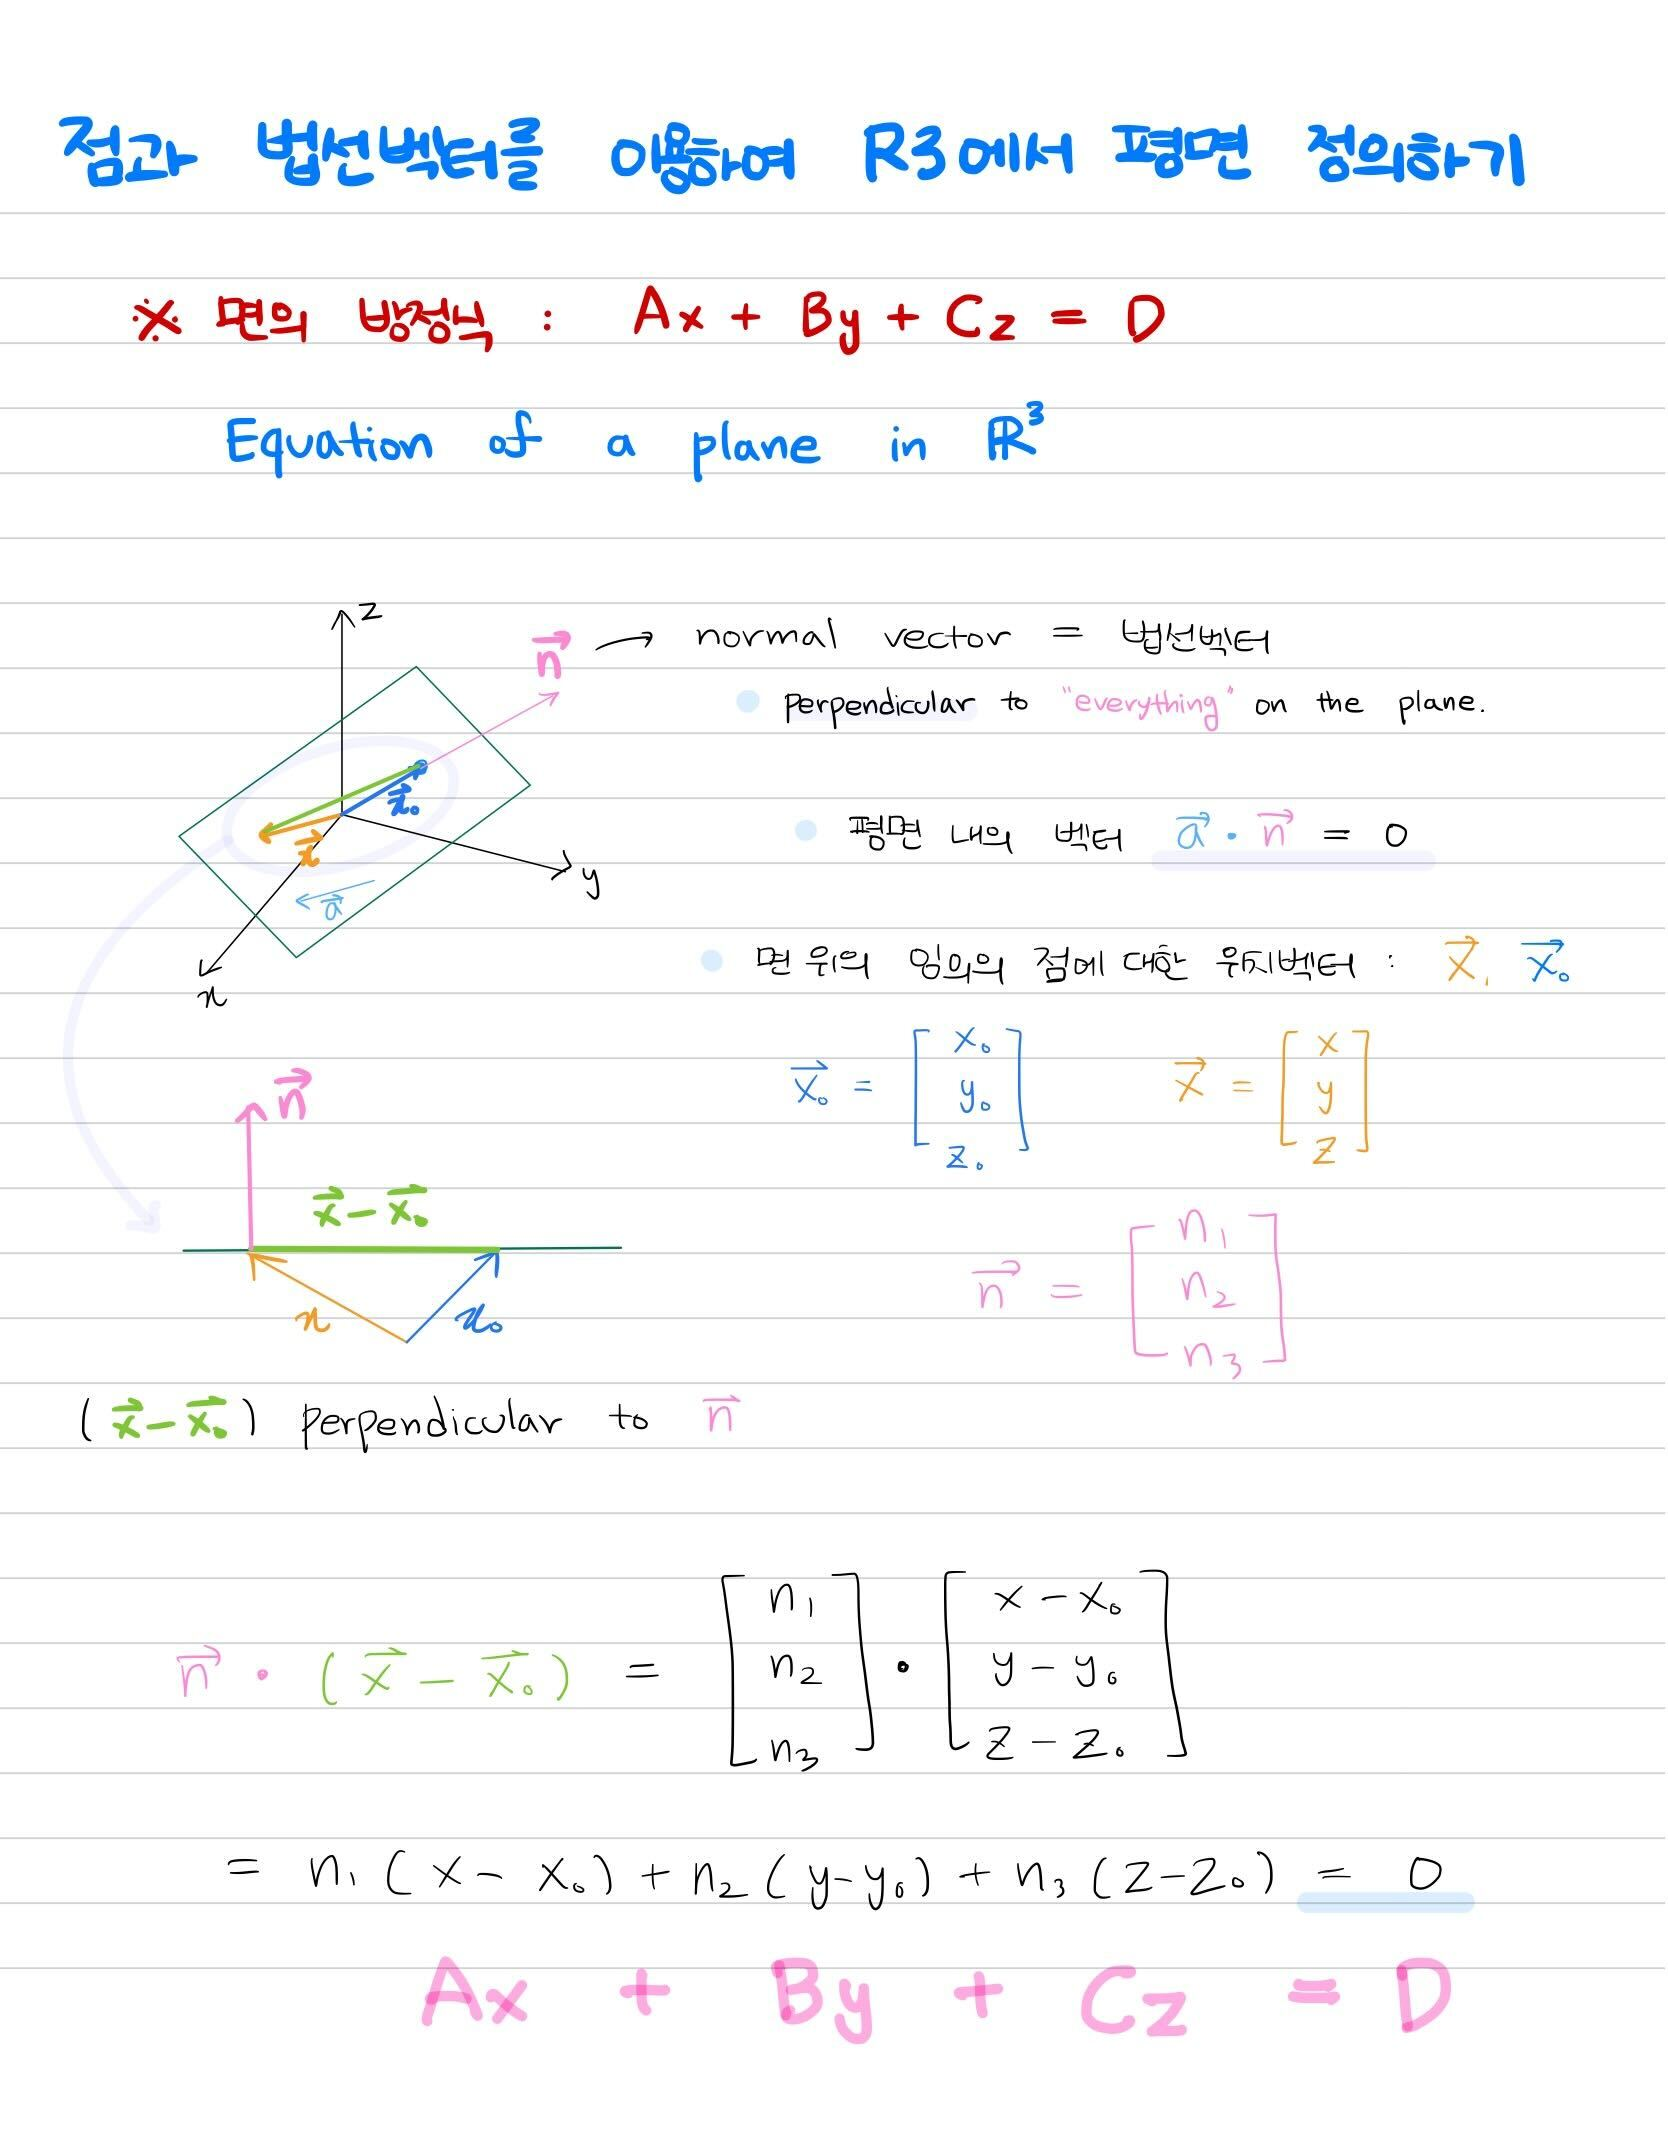 점과 법선벡터를 이용하여 R3에서 평면 정의하기
※ 면의 방정식 : Ax + By + Cz = D
Equation of a plane in ℝ³
z
n⃗ → normal vector = 법선벡터
perpendicular to "everything" on the plane.
x⃗₀
x⃗
y
a⃗
x
평면 내의 벡터 a⃗ · n⃗ = 0
면 위의 임의의 점에 대한 위치벡터 : x⃗, x⃗₀
x⃗₀ = [x₀ y₀ z₀] x⃗ = [x y z]
n⃗
x⃗ - x⃗₀
x x₀
n⃗ = [n₁ n₂ n₃]
(x⃗ - x⃗₀) perpendicular to n⃗
n⃗ · (x⃗ - x⃗₀) = [n₁ n₂ n₃] · [x - x₀ y - y₀ z - z₀]
= n₁(x - x₀) + n₂(y - y₀) + n₃(z - z₀) = 0
Ax + By + Cz = D